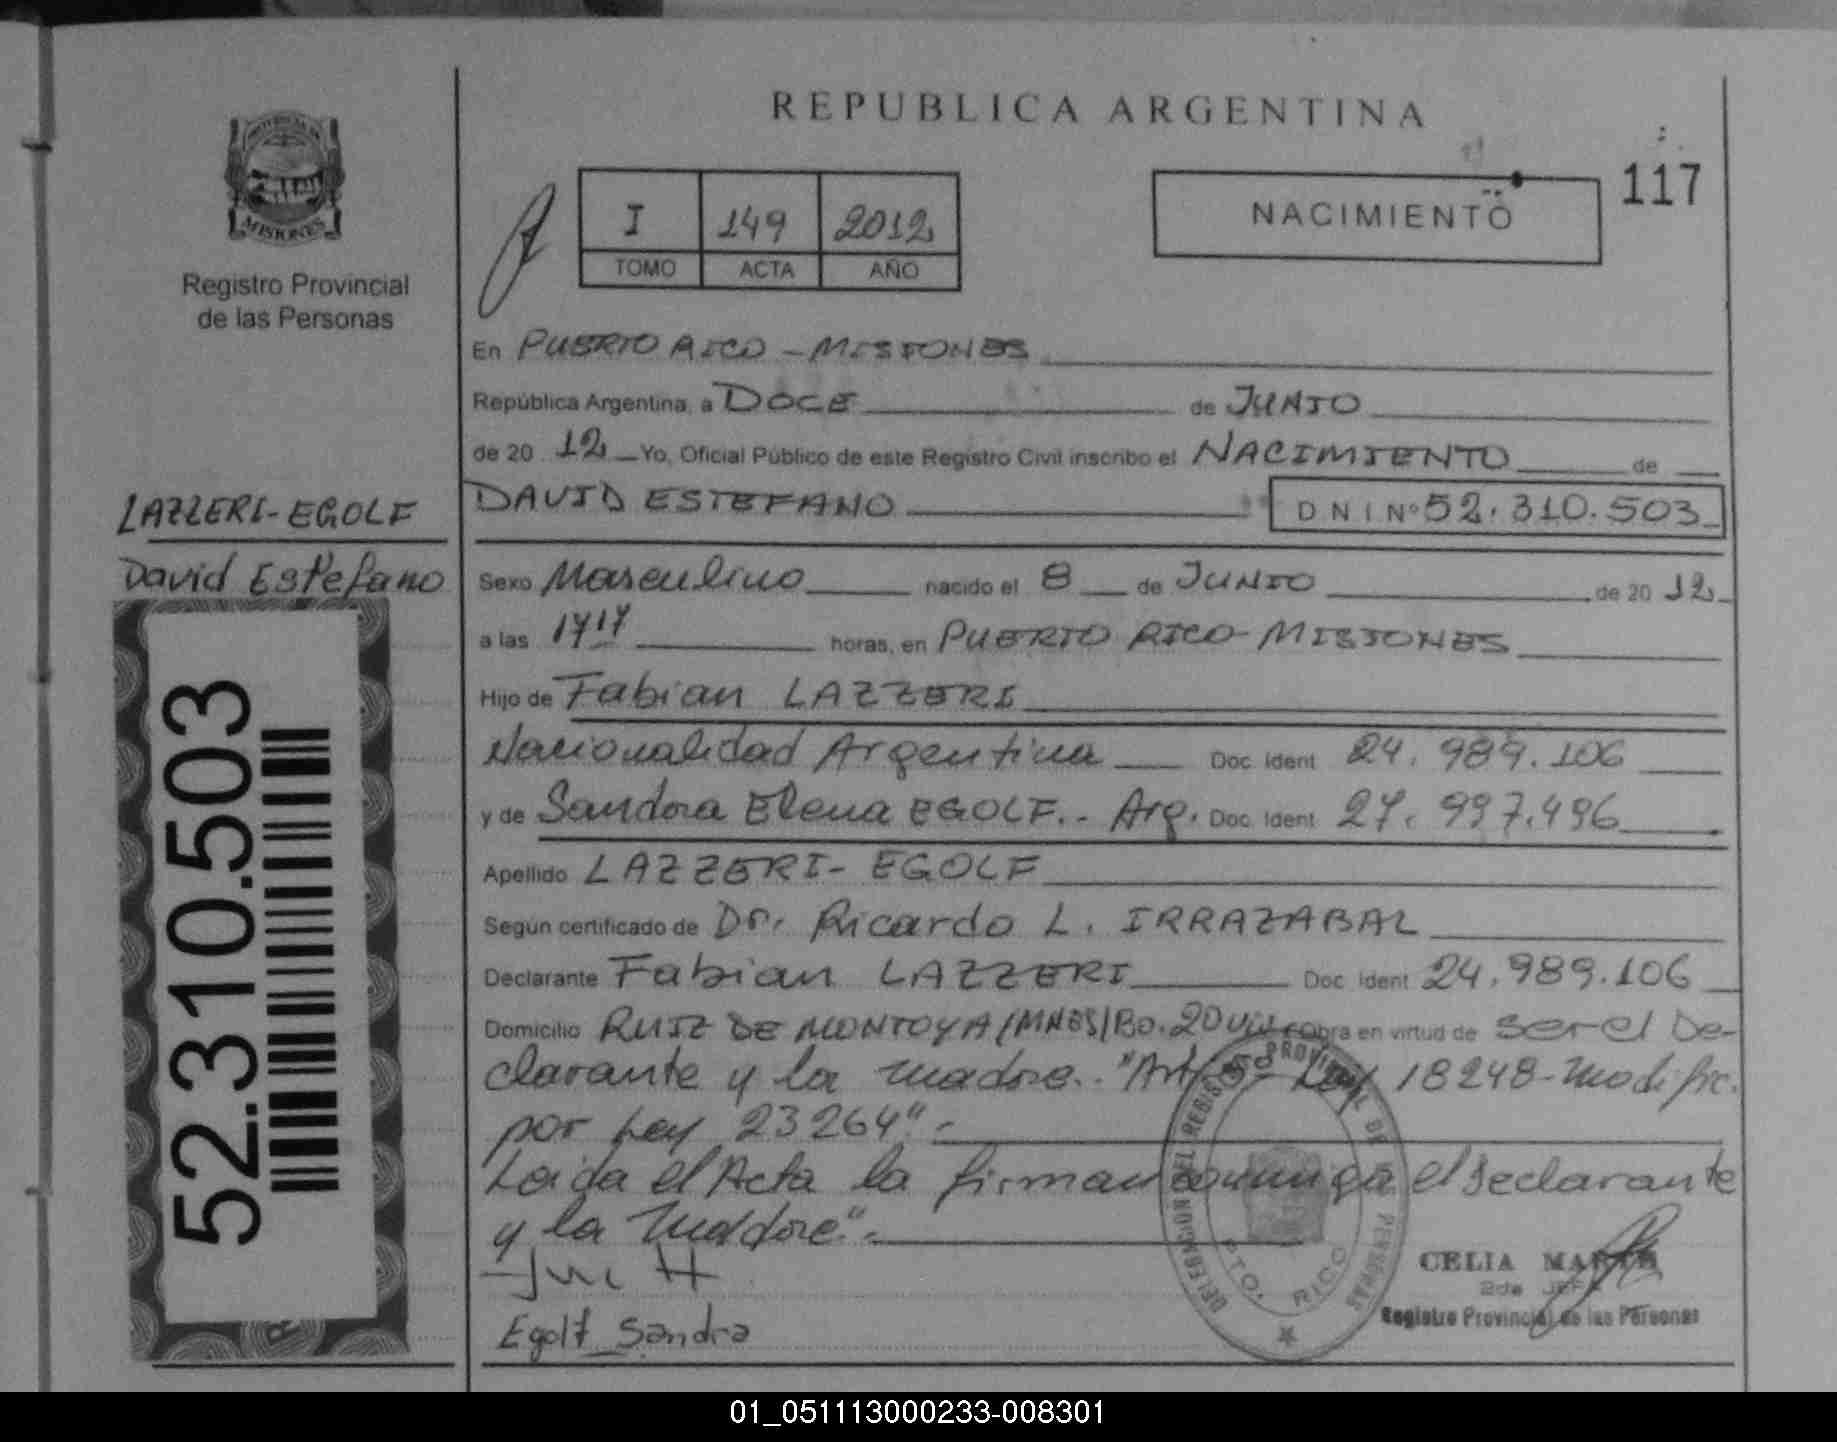 REPUBLICA ARGENTINA
117
PROVINCIA DE
MISIONES
Registro Provincial
de las Personas
I 149 2012
TOMO ACTA AÑO
NACIMIENTO
En PUERTO RICO - MISIONES
República Argentina, a DOCE de JUNIO
de 20 12 Yo, Oficial Público de este Registro Civil inscribo el NACIMIENTO de
DAVID ESTEFANO DNI Nº 52.310.503
LAZZERI-EGOLF
David Estefano
52.310.503
Sexo Masculino nacido el 8 de JUNIO de 20 12
a las 1717 horas, en PUERTO RICO - MISIONES
Hijo de Fabian LAZZERI
Nacionalidad Argentina Doc. Ident 24.989.106
y de Sandra Elena EGOLF.- Arg. Doc. Ident 27.997.496
Apellido LAZZERI - EGOLF
Según certificado de Dr. Ricardo L. IRRAZABAL
Declarante Fabian LAZZERI Doc. Ident 24.989.106
Domicilio RUIZ DE MONTOYA/MNES/Bo. 20 Viv. Obra en virtud de ser el De-
clarante y la madre.- "Art. Ley 18248-Modific.
por Ley 23264".-
Leida el Acta la firman conmigo el declarante
y la madre".-
Egolf Sandra
DELEGACIÓN DEL REGISTRO PROVINCIAL DE LAS PERSONAS
PTO. RICO
CELIA
2da JEFA
Registro Provincial de las Personas
01_051113000233-008301